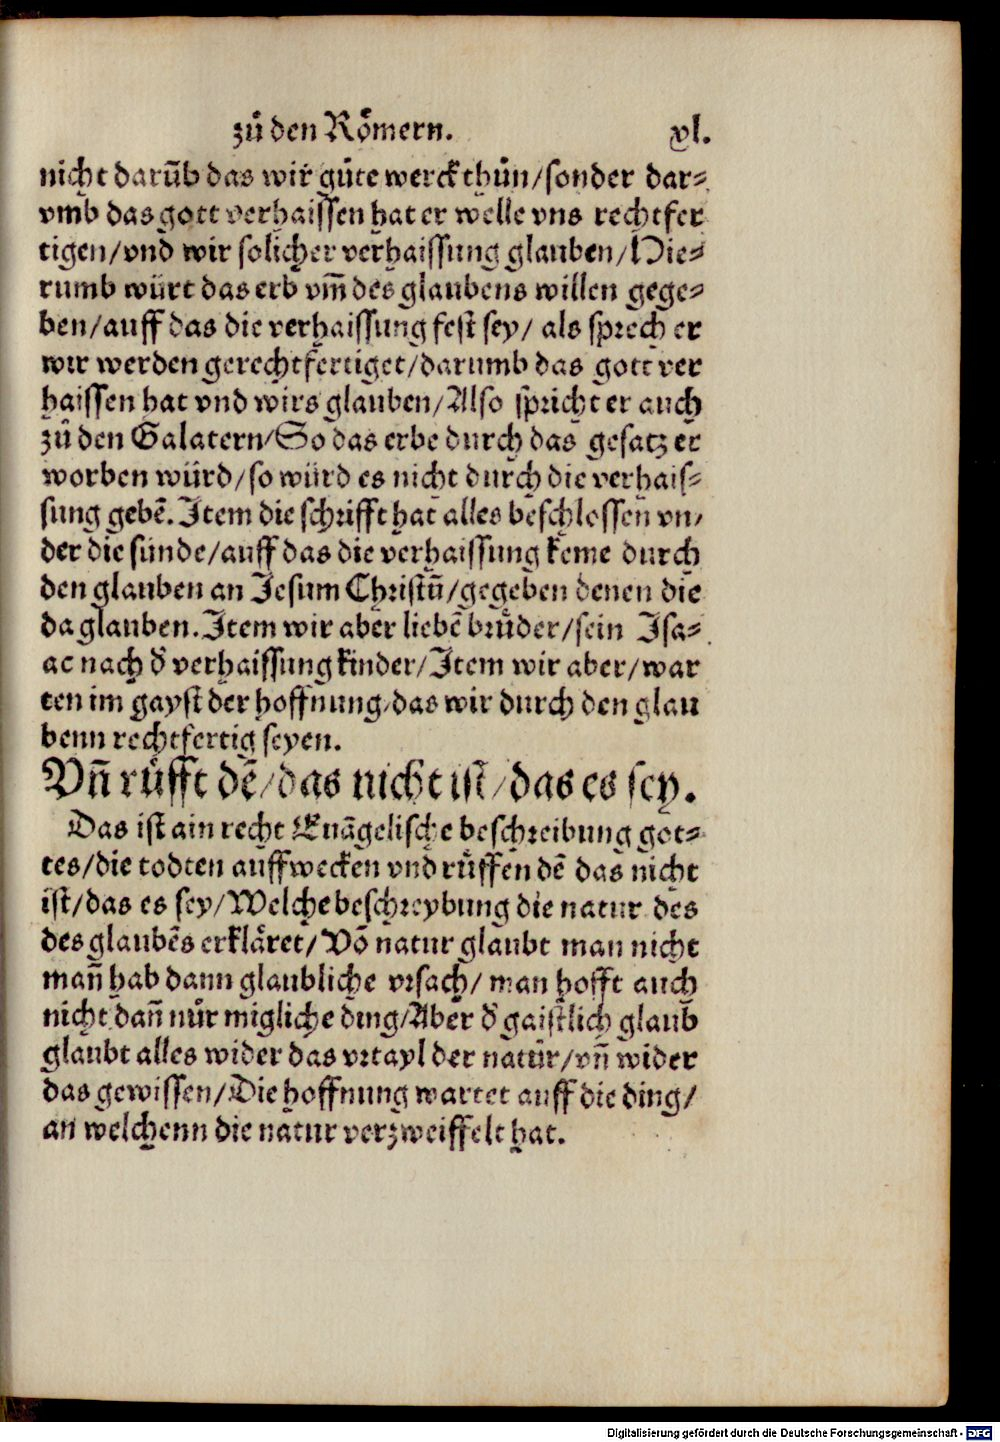 zů den Römern. xl.
nicht darūb das wir gůte werck thůn/sonder dar⸗
vmb das gott verhaissen hat er welle vns rechtfer
tigen/vnd wir solicher verhaissung glauben/Die⸗
rumb würt das erb vm̄ des glaubens willen gege⸗
ben/auff das die verhaissung fest sey/ als sprech er
wir werden gerechtfertiget/darumb das gott ver
haissen hat vnd wirs glauben/Also spricht er auch
zů den Galatern/So das erbe durch das gesatz er
worben würd/so würd es nicht durch die verhais⸗
sung gebē. Item die schrifft hat alles beschlossen vn/
der die sünde/auff das die verhaissung keme durch
den glauben an Jesum Christū/gegeben denen die
da glauben. Item wir aber liebē brůder/sein Isa⸗
ac nach d̄ verhaissung kinder/Item wir aber/war
ten im gayst der hoffnung/das wir durch den glau
benn rechtfertig seyen.
Vn̄ růfft dē/das nicht ist/das es sey.
Das ist ain recht Euāgelische beschreibung got⸗
tes/die todten auffwecken vnd růffen dē das nicht
ist/das es sey/Welche beschreybung die natur des
des glaubēs erkläret/Vō natur glaubt man nicht
man̄ hab dann glaubliche vrsach/ man hofft auch
nicht dan̄ nůr migliche ding/Aber d̄ gaistlich glaub
glaubt alles wider das vrtayl der natůr/vn̄ wider
das gewissen/Die hoffnung wartet auff die ding/
an welchenn die natur verzweiffelt hat.
Digitalisierung gefördert durch die Deutsche Forschungsgemeinschaft - DFG